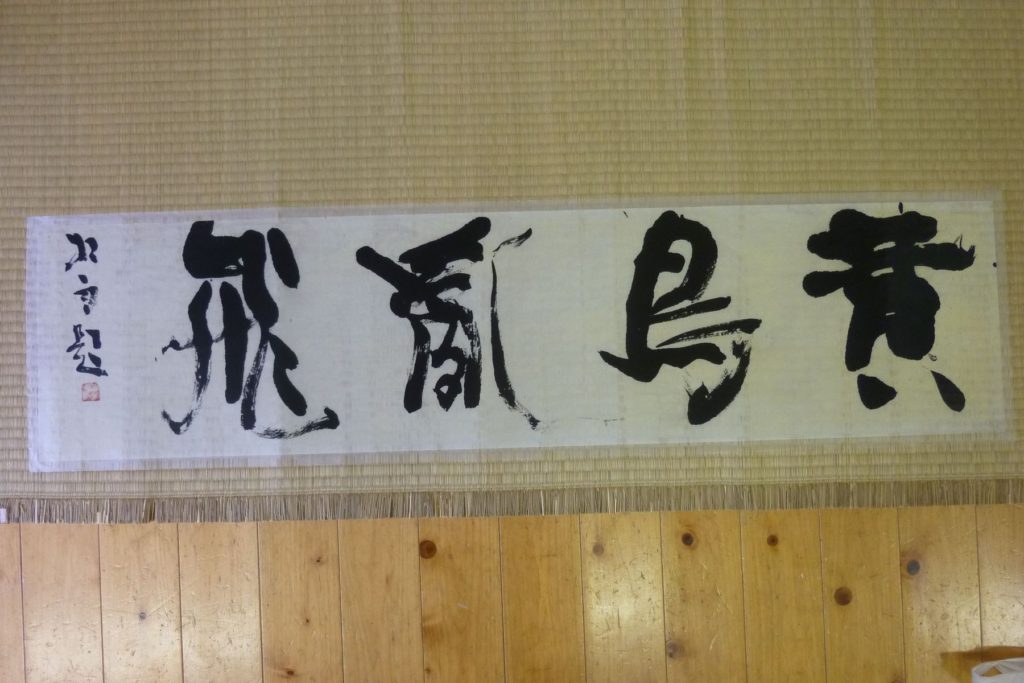 黄鳥亂飛